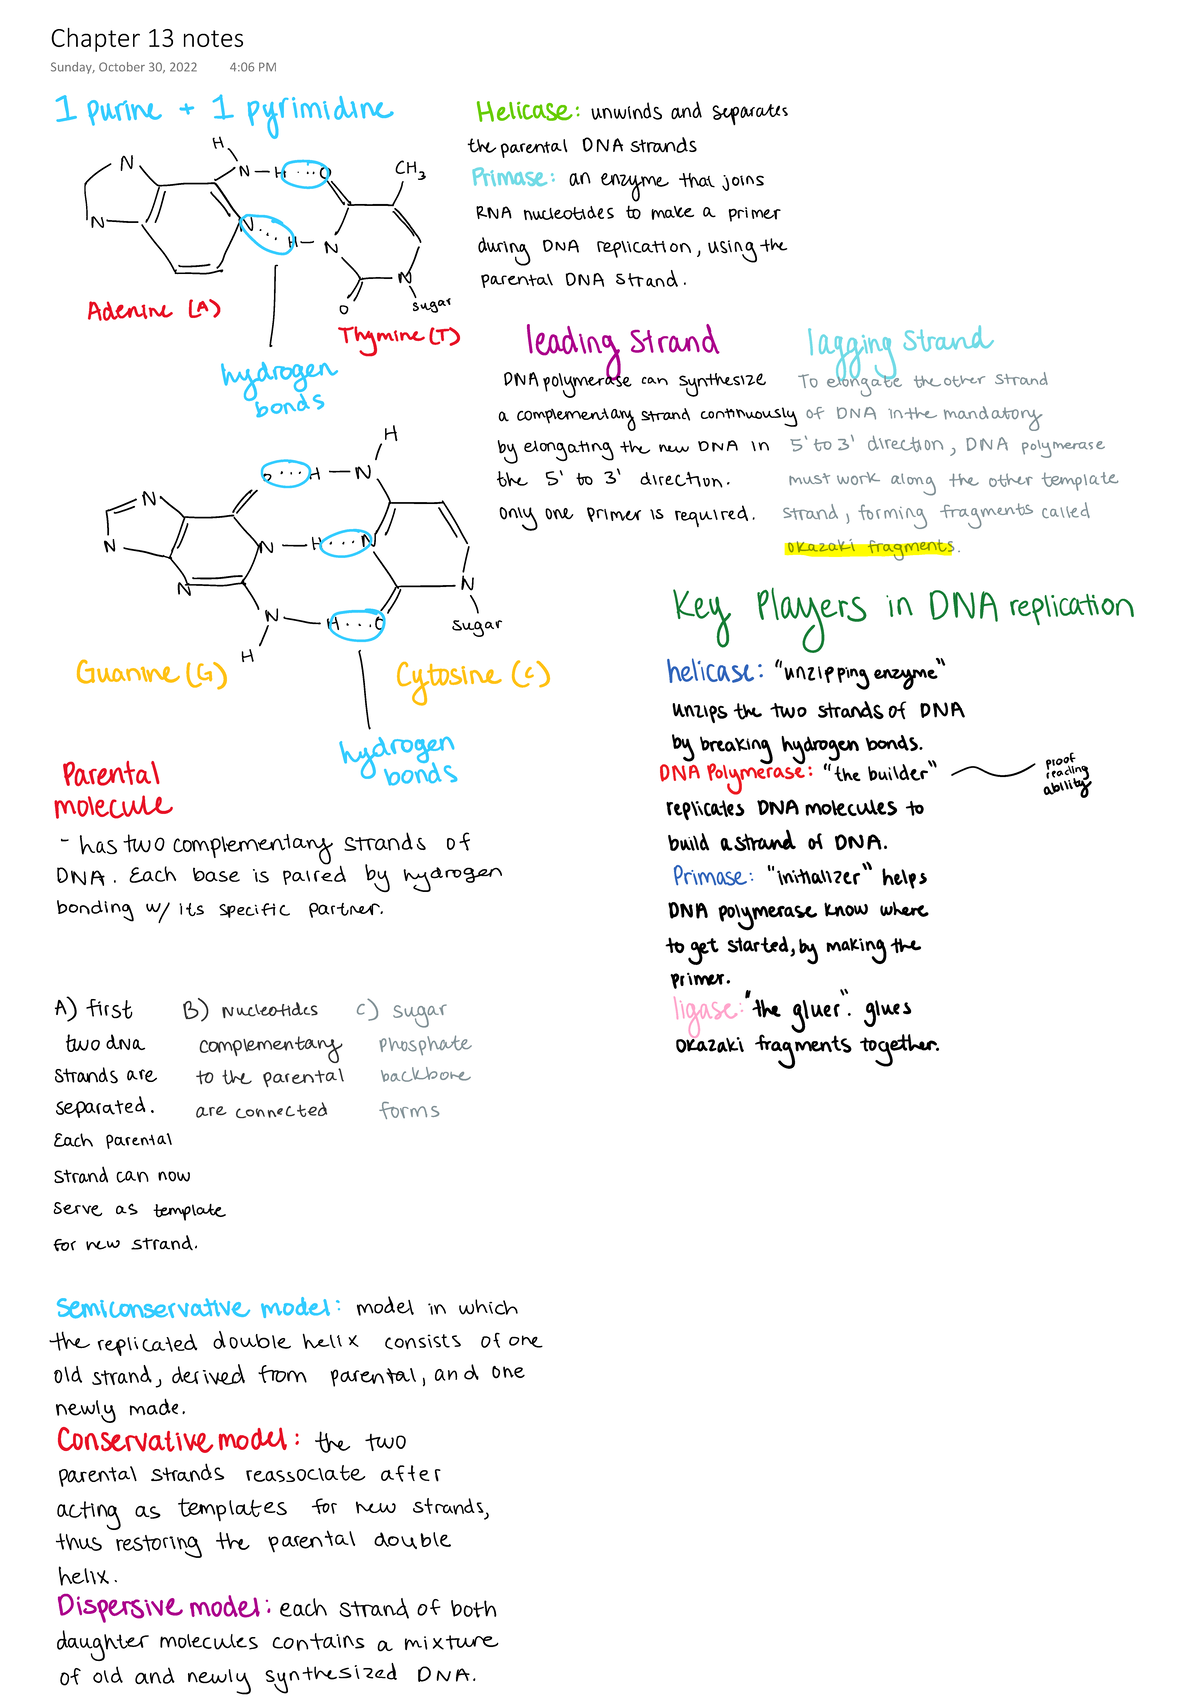 Chapter 13 notes
Sunday, October 30, 2022 4:06 PM
1 purine + 1 pyrimidine
H
N
N-H···O
CH3
N
N···H-N
N
O
sugar
Adenine (A)
Thymine (T)
hydrogen
bonds
H
O···H-N
N
N
N-H···N
N
N
N-H···O
H
sugar
Guanine (G)
Cytosine (C)
hydrogen
bonds
Parental
molecule
- has two complementary strands of
DNA. Each base is paired by hydrogen
bonding w/ its specific partner.
A) first
two dna
strands are
separated.
Each parental
strand can now
serve as template
for new strand.
B) nucleotides
complementary
to the parental
are connected
C) sugar
phosphate
backbone
forms
Semiconservative model: model in which
the replicated double helix consists of one
old strand, derived from parental, and one
newly made.
Conservative model: the two
parental strands reassociate after
acting as templates for new strands,
thus restoring the parental double
helix.
Dispersive model: each strand of both
daughter molecules contains a mixture
of old and newly synthesized DNA.
Helicase: unwinds and separates
the parental DNA strands
Primase: an enzyme that joins
RNA nucleotides to make a primer
during DNA replication, using the
parental DNA strand.
leading strand
DNA polymerase can synthesize
a complementary strand continuously
by elongating the new DNA in
the 5' to 3' direction.
only one primer is required.
lagging strand
To elongate the other strand
of DNA in the mandatory
5' to 3' direction, DNA polymerase
must work along the other template
strand, forming fragments called
okazaki fragments.
Key Players in DNA replication
helicase: "unzipping enzyme"
unzips the two strands of DNA
by breaking hydrogen bonds.
DNA Polymerase: "the builder"
proof
reading
ability
replicates DNA molecules to
build a strand of DNA.
Primase: "initializer" helps
DNA polymerase know where
to get started, by making the
primer.
ligase: "the gluer". glues
okazaki fragments together.